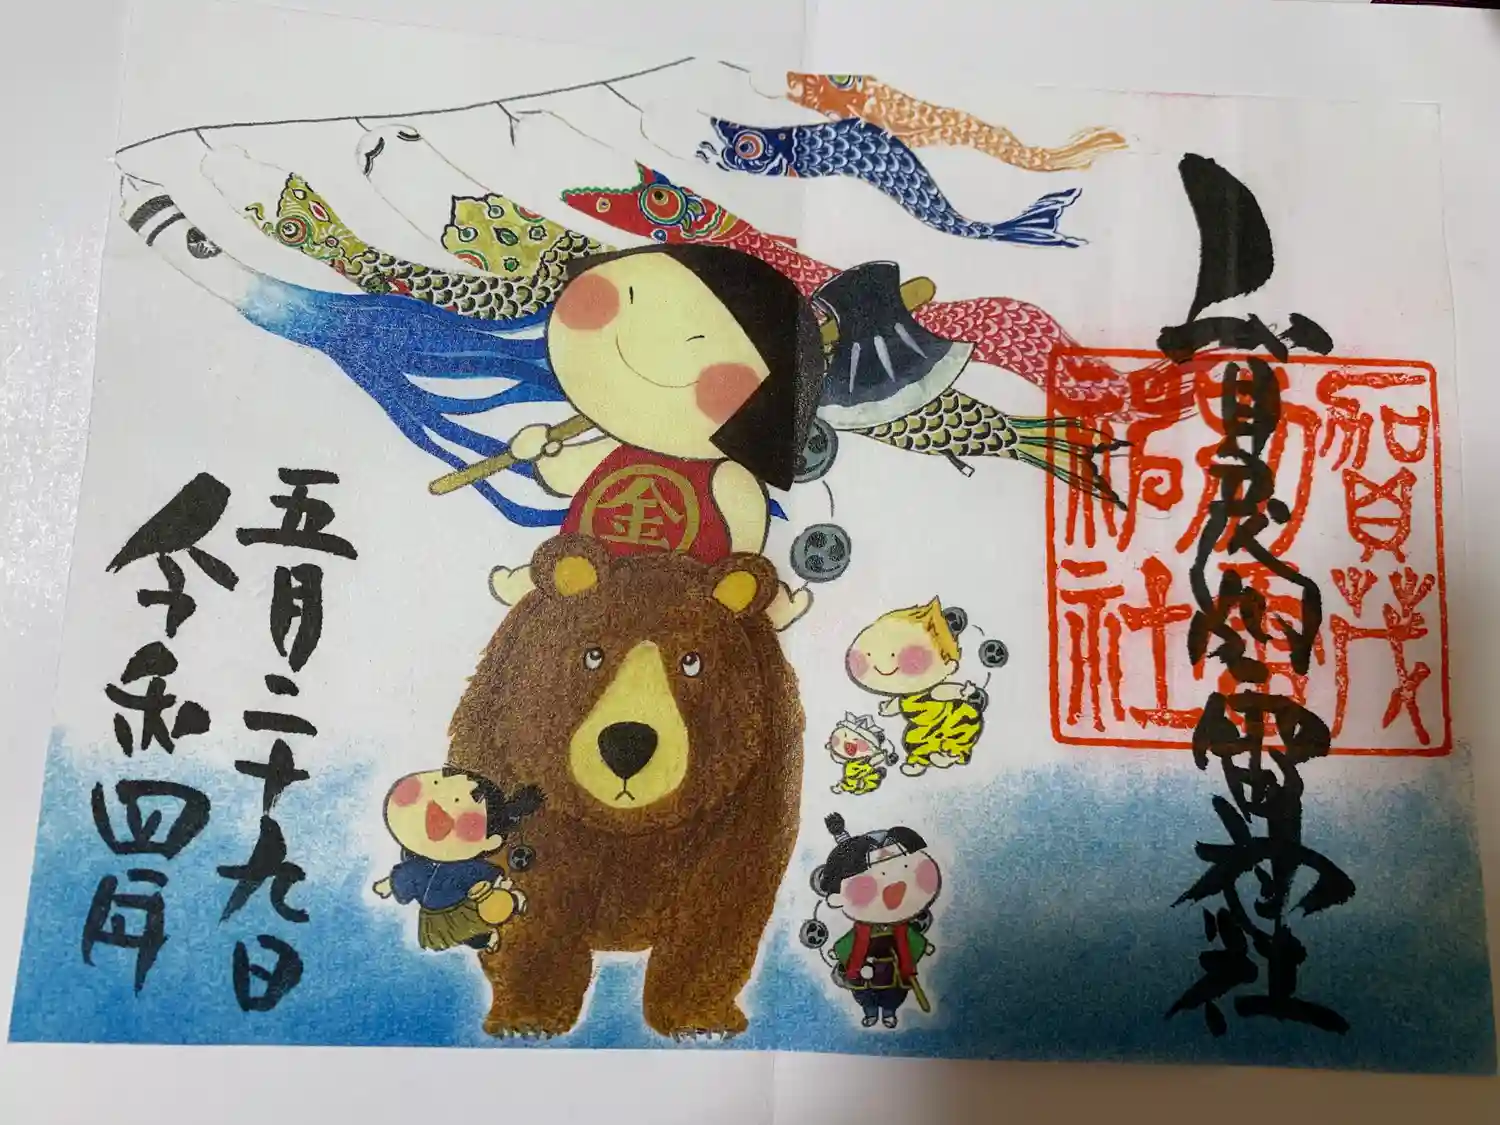 賀茂別雷神社
賀茂
別雷
神社
金
五月二十九日
令和四年